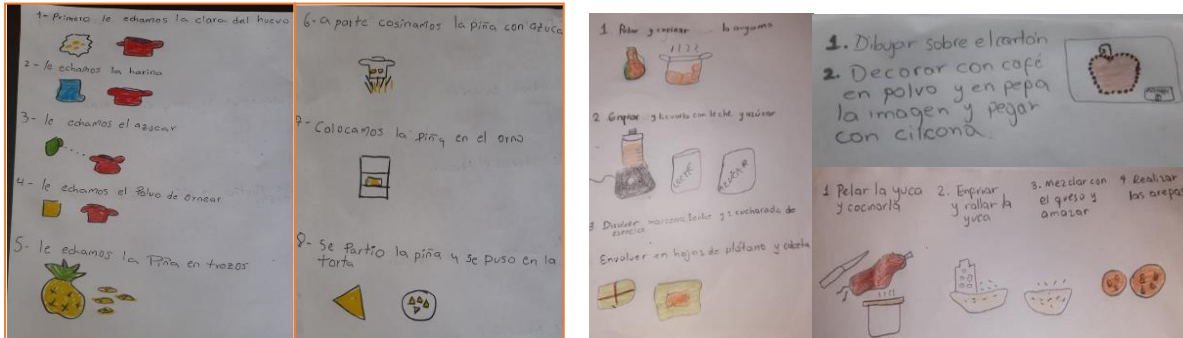 1- Primero le echamos la clara del huevo
2- le echamos la harina
3- le echamos el azocar
4- le echamos el Polvo de ornear
5- le echamos la Piña en trozos
6- a parte cosinamos la piña con azuca
7- Colocamos la piña en el orno
8- Se Partio la piña y se puso en la
torta
1. Pelar y cocinar la auyama
2. Enfriar y llevarla con leche y azúcar
LECHE
AZUCAR
3 Disolver maizena leche y 2 cucharada de
esencia
Envolver en hojas de plátano y
1. Dibujar sobre el cartón
2. Decorar con café
en polvo y en pepa
la imagen y pegar
con cilcona.
1. Pelar la yuca
y cocinarla
2. Enfriar
y rallar la
yuca
3. Mezclar con
el queso y
amazar
4. Realizar
las arepas